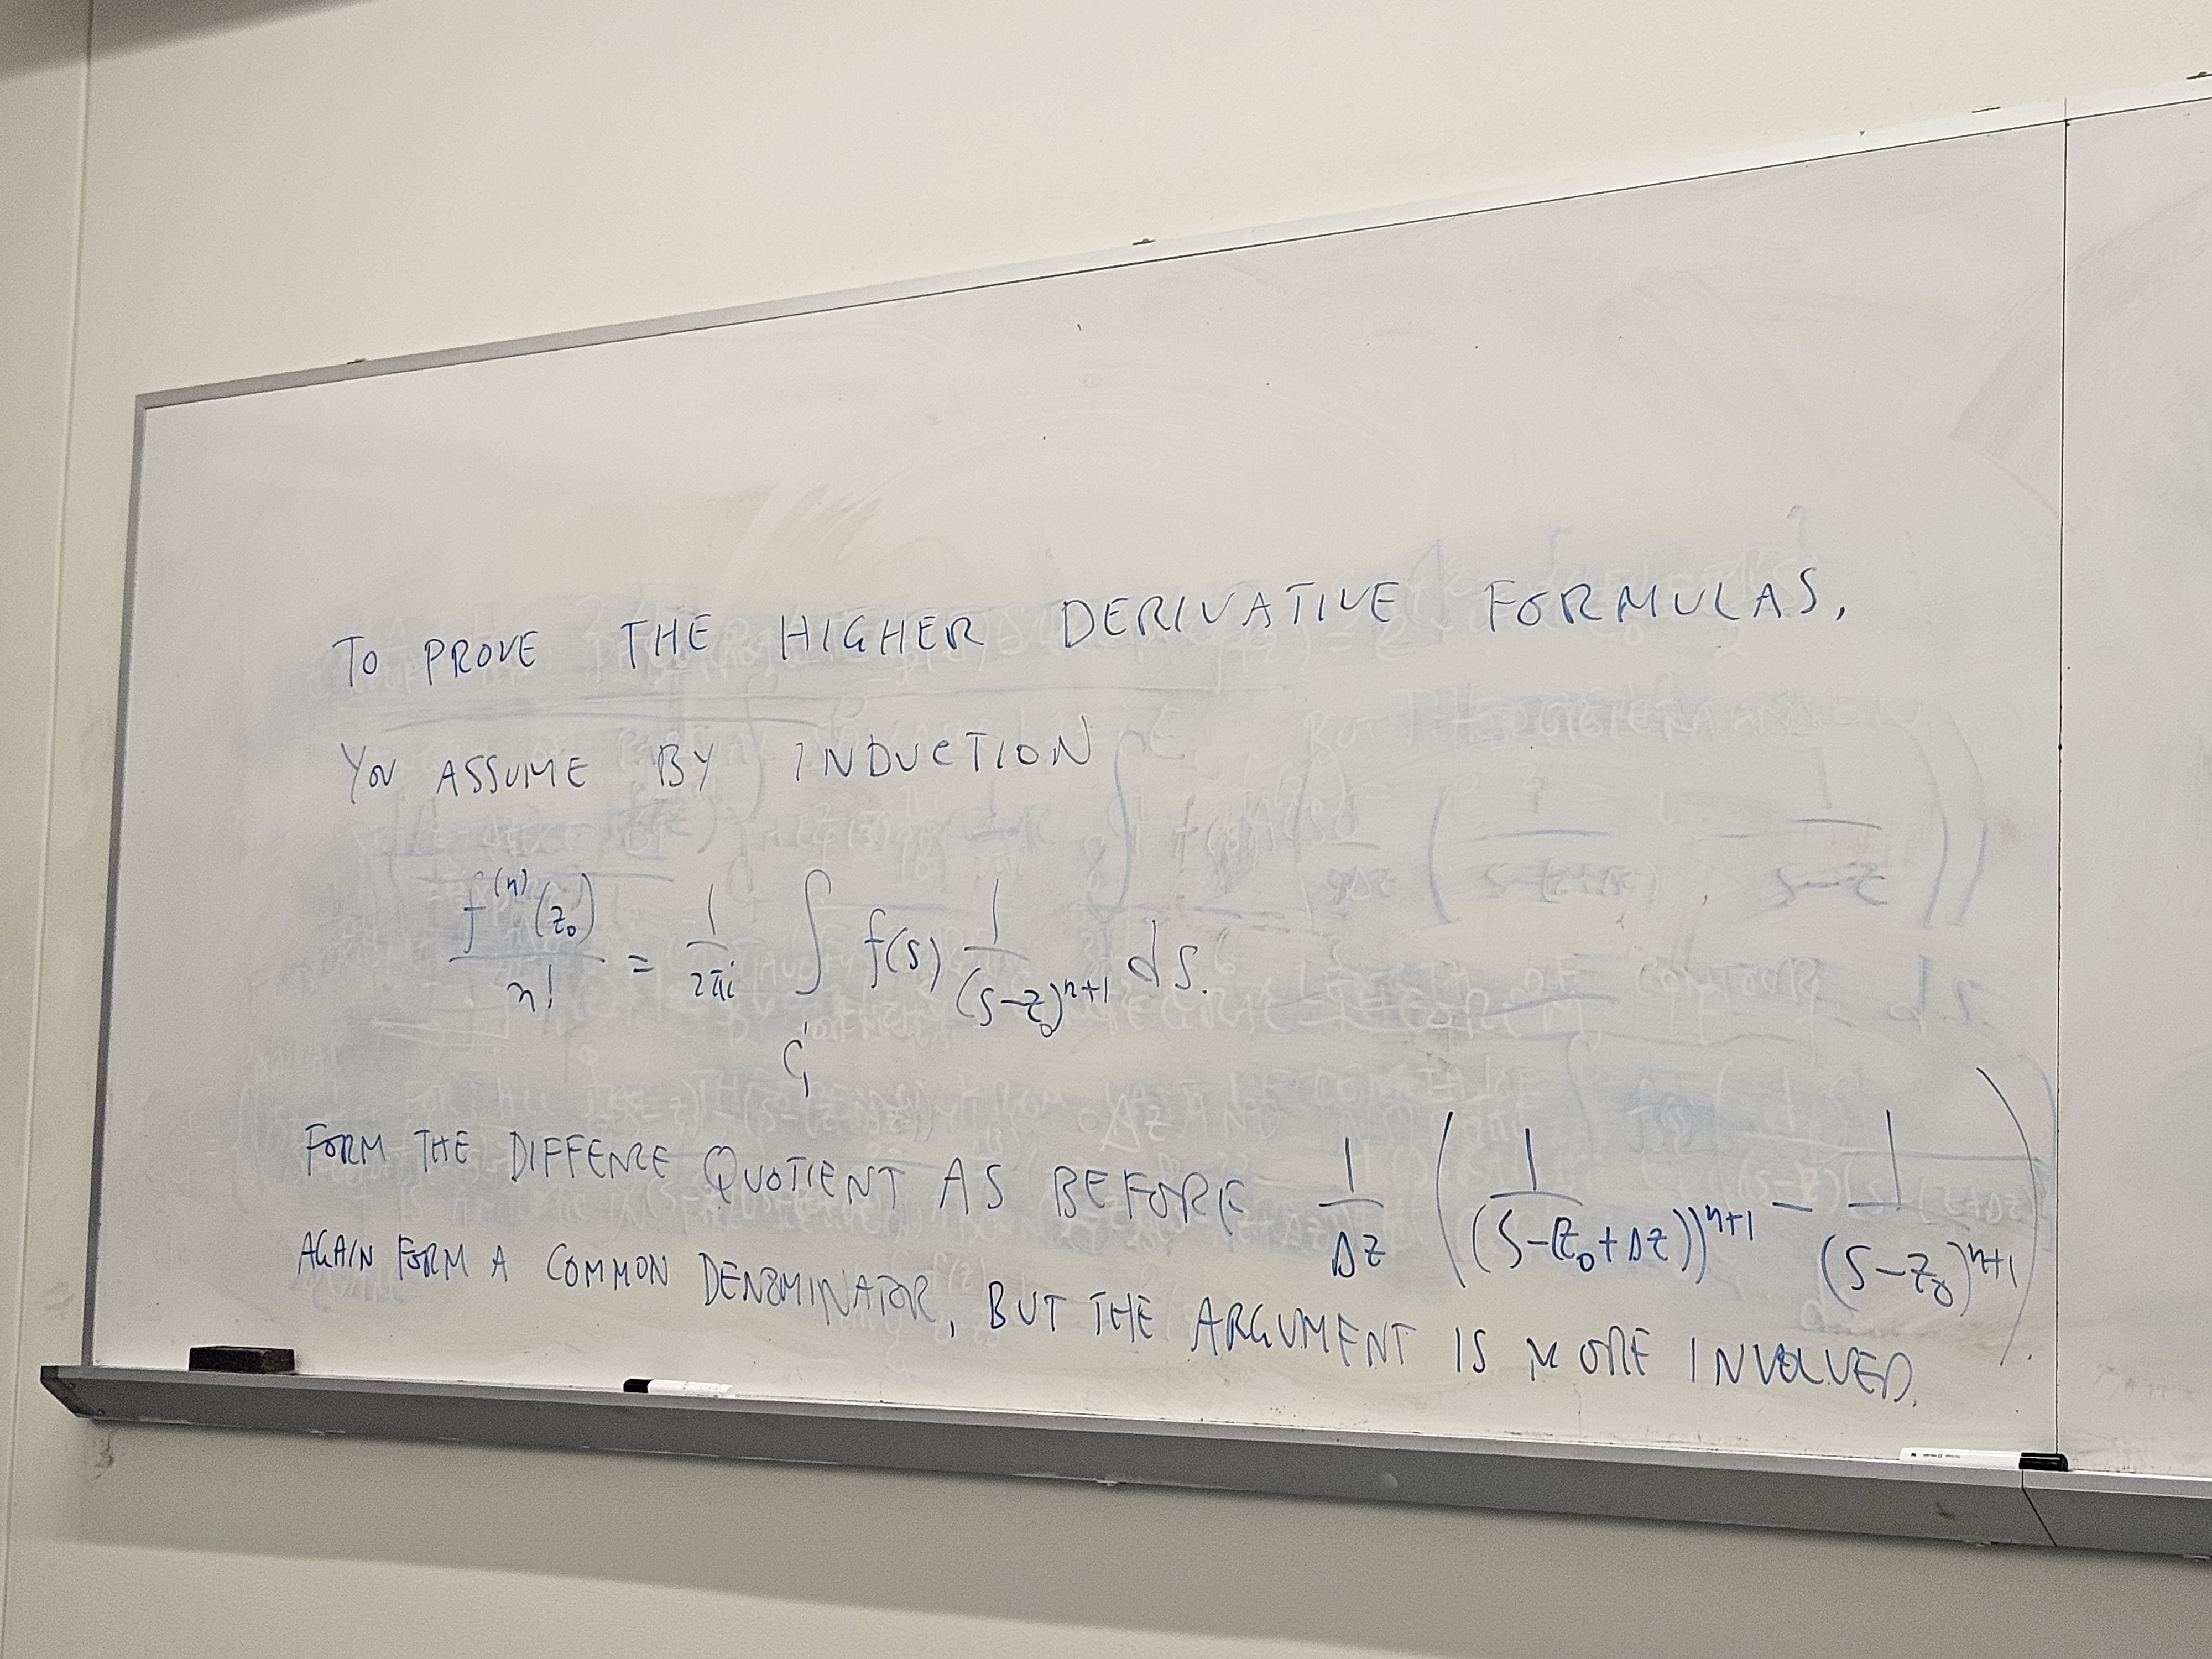 TO PROVE THE HIGHER DERIVATIVE FORMULAS,
YOU ASSUME BY INDUCTION
f^(n)(z₀)/n! = 1/(2πi) ∫_C₁ f(s) 1/(s-z₀)^(n+1) ds.
FORM THE DIFFENCE QUOTIENT AS BEFORE 1/Δz (1/(s-(z₀+Δz))^(n+1) - 1/(s-z₀)^(n+1)).
AGAIN FORM A COMMON DENOMINATOR, BUT THE ARGUMENT IS MORE INVOLVED.